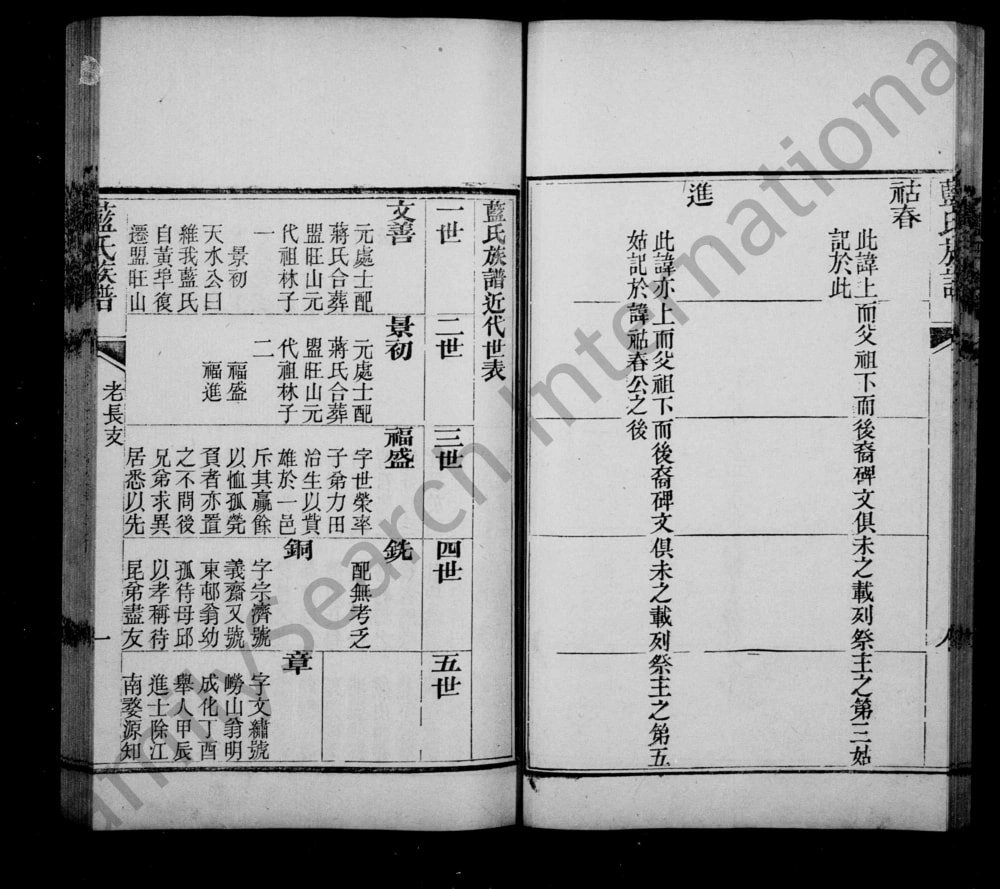 藍氏族譜
祜春
此諱上而父祖下而後裔碑文俱未之載列祭主之第三姑
記於此
進
此諱亦上而父祖下而後裔碑文俱未之載列祭主之第五
姑記於諱祜春公之後
藍氏族譜近代世表
一世
二世
三世
四世
五世
文善
元處士配
蔣氏合葬
盟旺山元
代祖林子
一
景初
天水公曰
維我藍氏
自黃埠復
遷盟旺山
景初
元處士配
蔣氏合葬
盟旺山元
代祖林子
二
福盛
福進
福盛
字世榮率
子弟力田
治生以貲
雄於一邑
斥其贏餘
以恤孤煢
貧者亦置
之不問後
兄弟求異
居悉以先
銑
配無考乏
銅
字宗濟號
義齋又號
東邨翁幼
孤侍母邱
以孝稱待
昆弟盡友
章
字文繡號
嶗山翁明
成化丁酉
舉人甲辰
進士除江
南婺源知
藍氏族譜
老長支
一
FamilySearch International